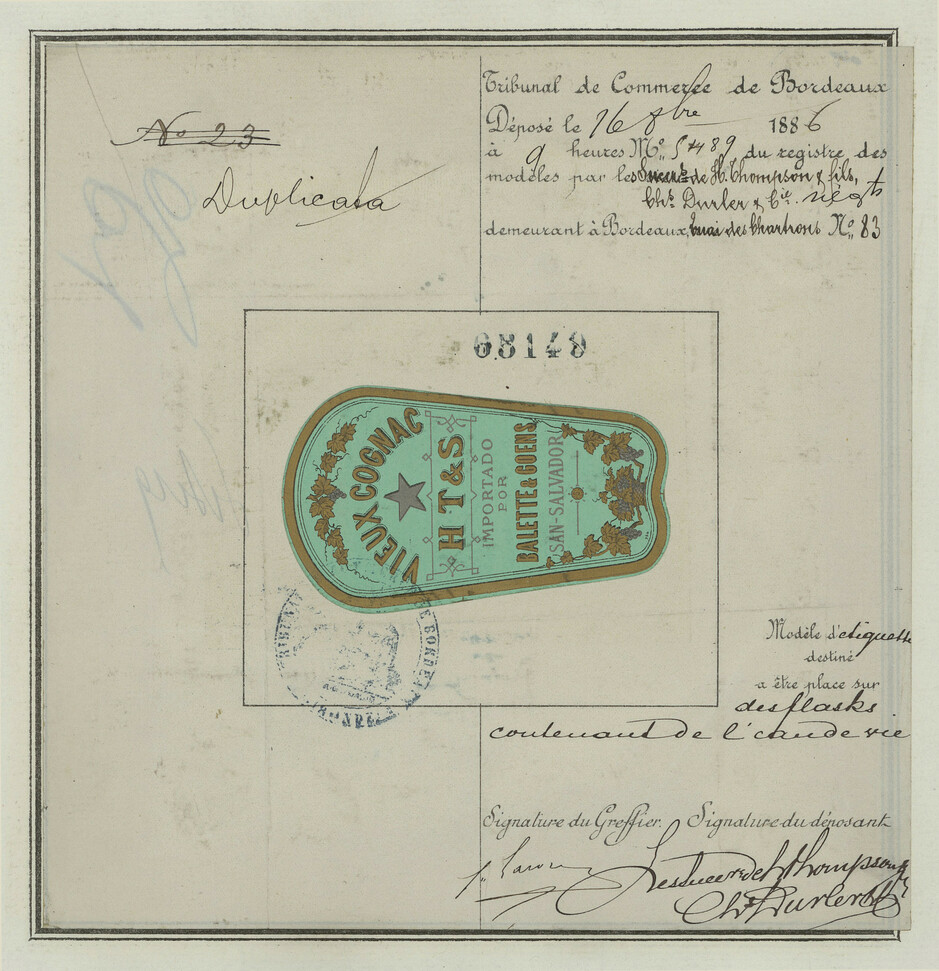 Nº 23
Duplicata
Tribunal de Commerce de Bordeaux
Déposé le 16 8bre 1886
à 9 heures Nº 5489 du registre des
modèles par les Succrs de H. Thompson & fils,
Chs. Durler & Cie. négts
demeurant à Bordeaux, Quai des Chartrons Nº 83
68149
VIEUX COGNAC
H T & S
IMPORTADO
POR
BALETTE & GOENS
SAN-SALVADOR
Modèle d'etiquette
destiné
a être place sur
des flasks
contenant de l'eau de vie
Signature du Greffier. Signature du déposant
Les Succrs de H Thompson
Chs Durler